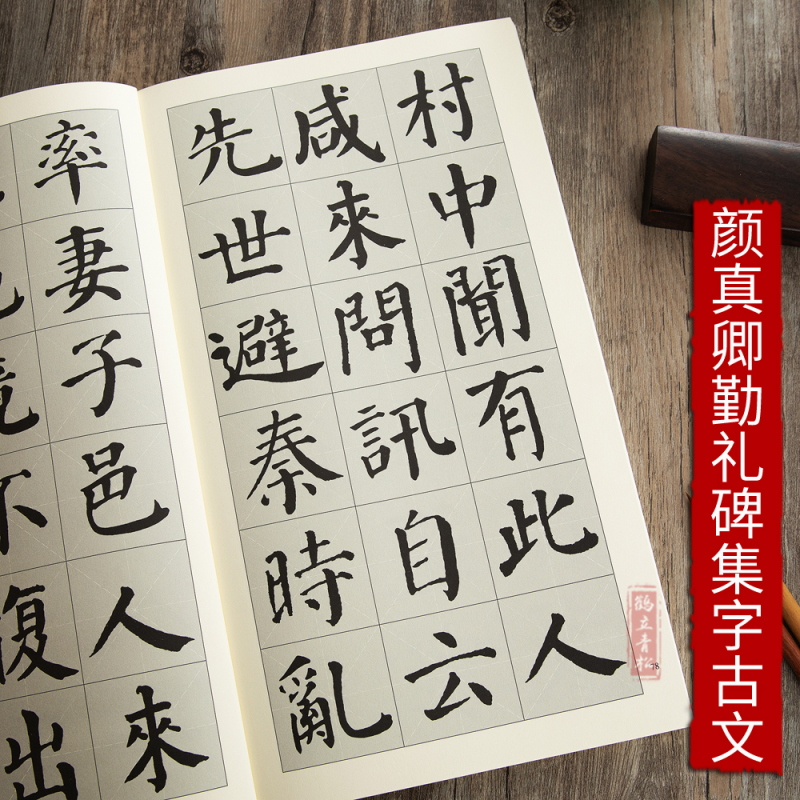 村中聞有此人
咸來問訊自云
先世避秦時亂
率妻子邑人來
境不復出
颜真卿勤礼碑集字古文
鶴立青松